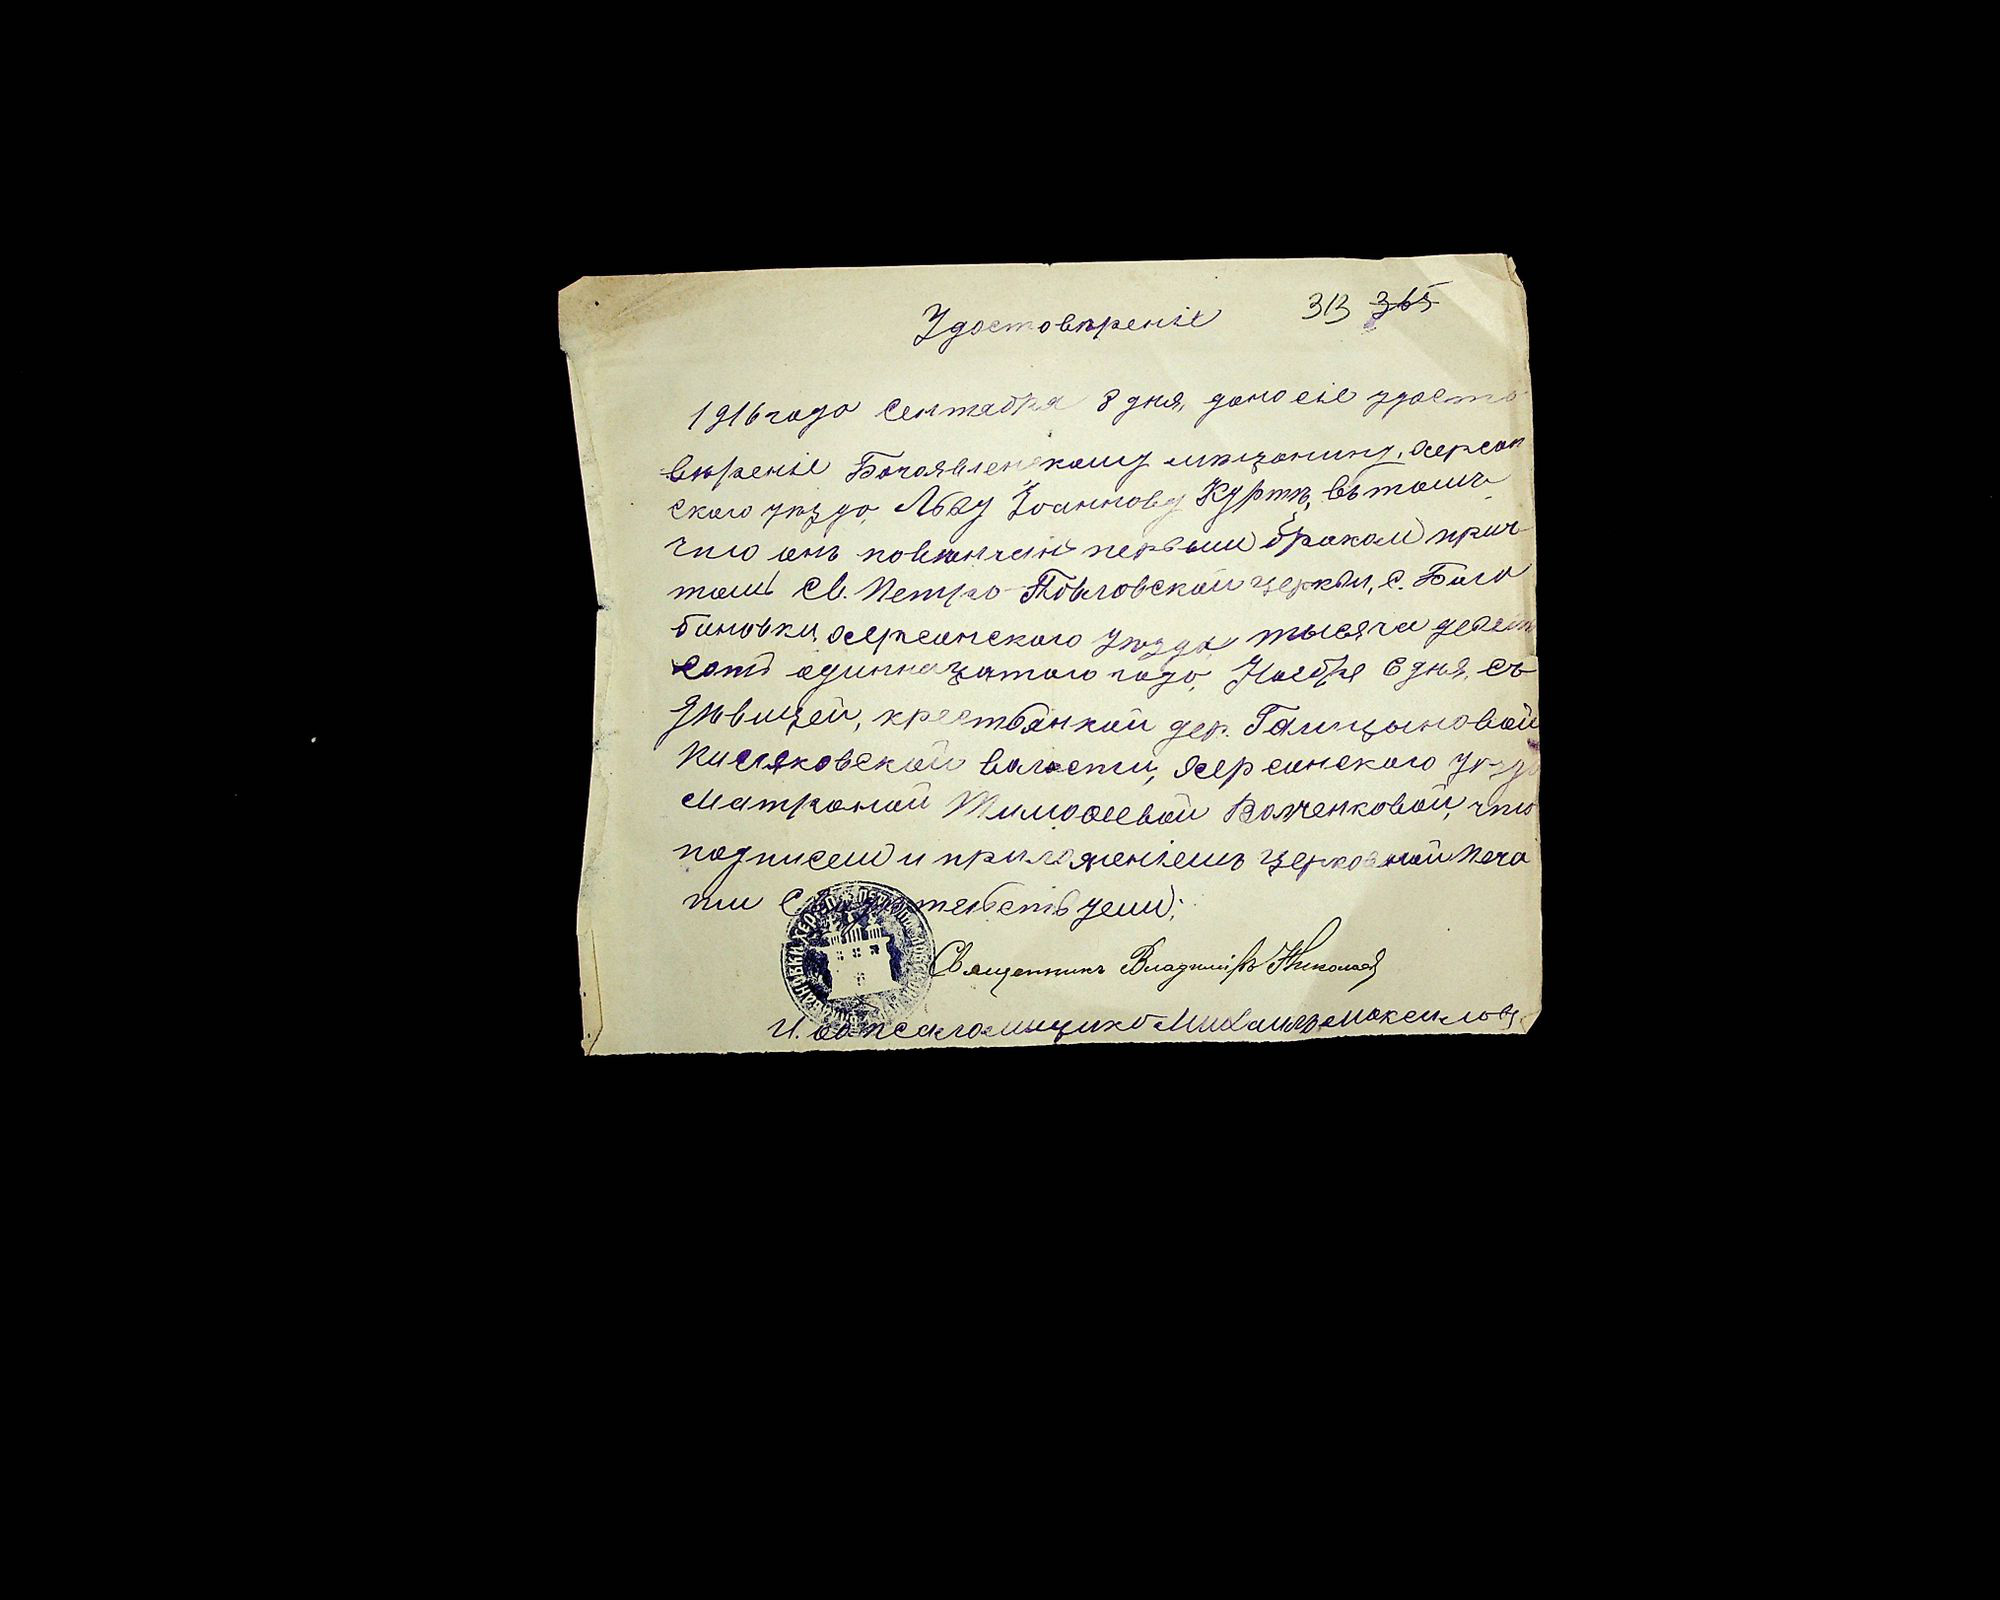 313 365
Удостовѣреніе
1916 года Сентября 8 дня, дано сіе удосто
вѣреніе Богоявленскому мѣщанину, Херсон
скаго уѣзда, Льву Іоаннову Куртъ, въ томъ
что онъ повѣнчанъ первымъ бракомъ прич
томъ Св. Петро-Павловской церкви, с. Бало
бановки, Херсонскаго уѣзда, тысяча девять
сотъ одиннадцатаго года, Ноября 6 дня, съ
дѣвицей, крестьянкой дер. Галицыновой
Кисляковской волости, Херсонскаго уѣзда
Матроной Тимофеевой Волченковой, что
подписью и приложеніемъ церковной печа
ти свидѣтельствуемъ;
Священникъ Владиміръ Николаев
И. д. псаломщика Михаилъ Максимовъ